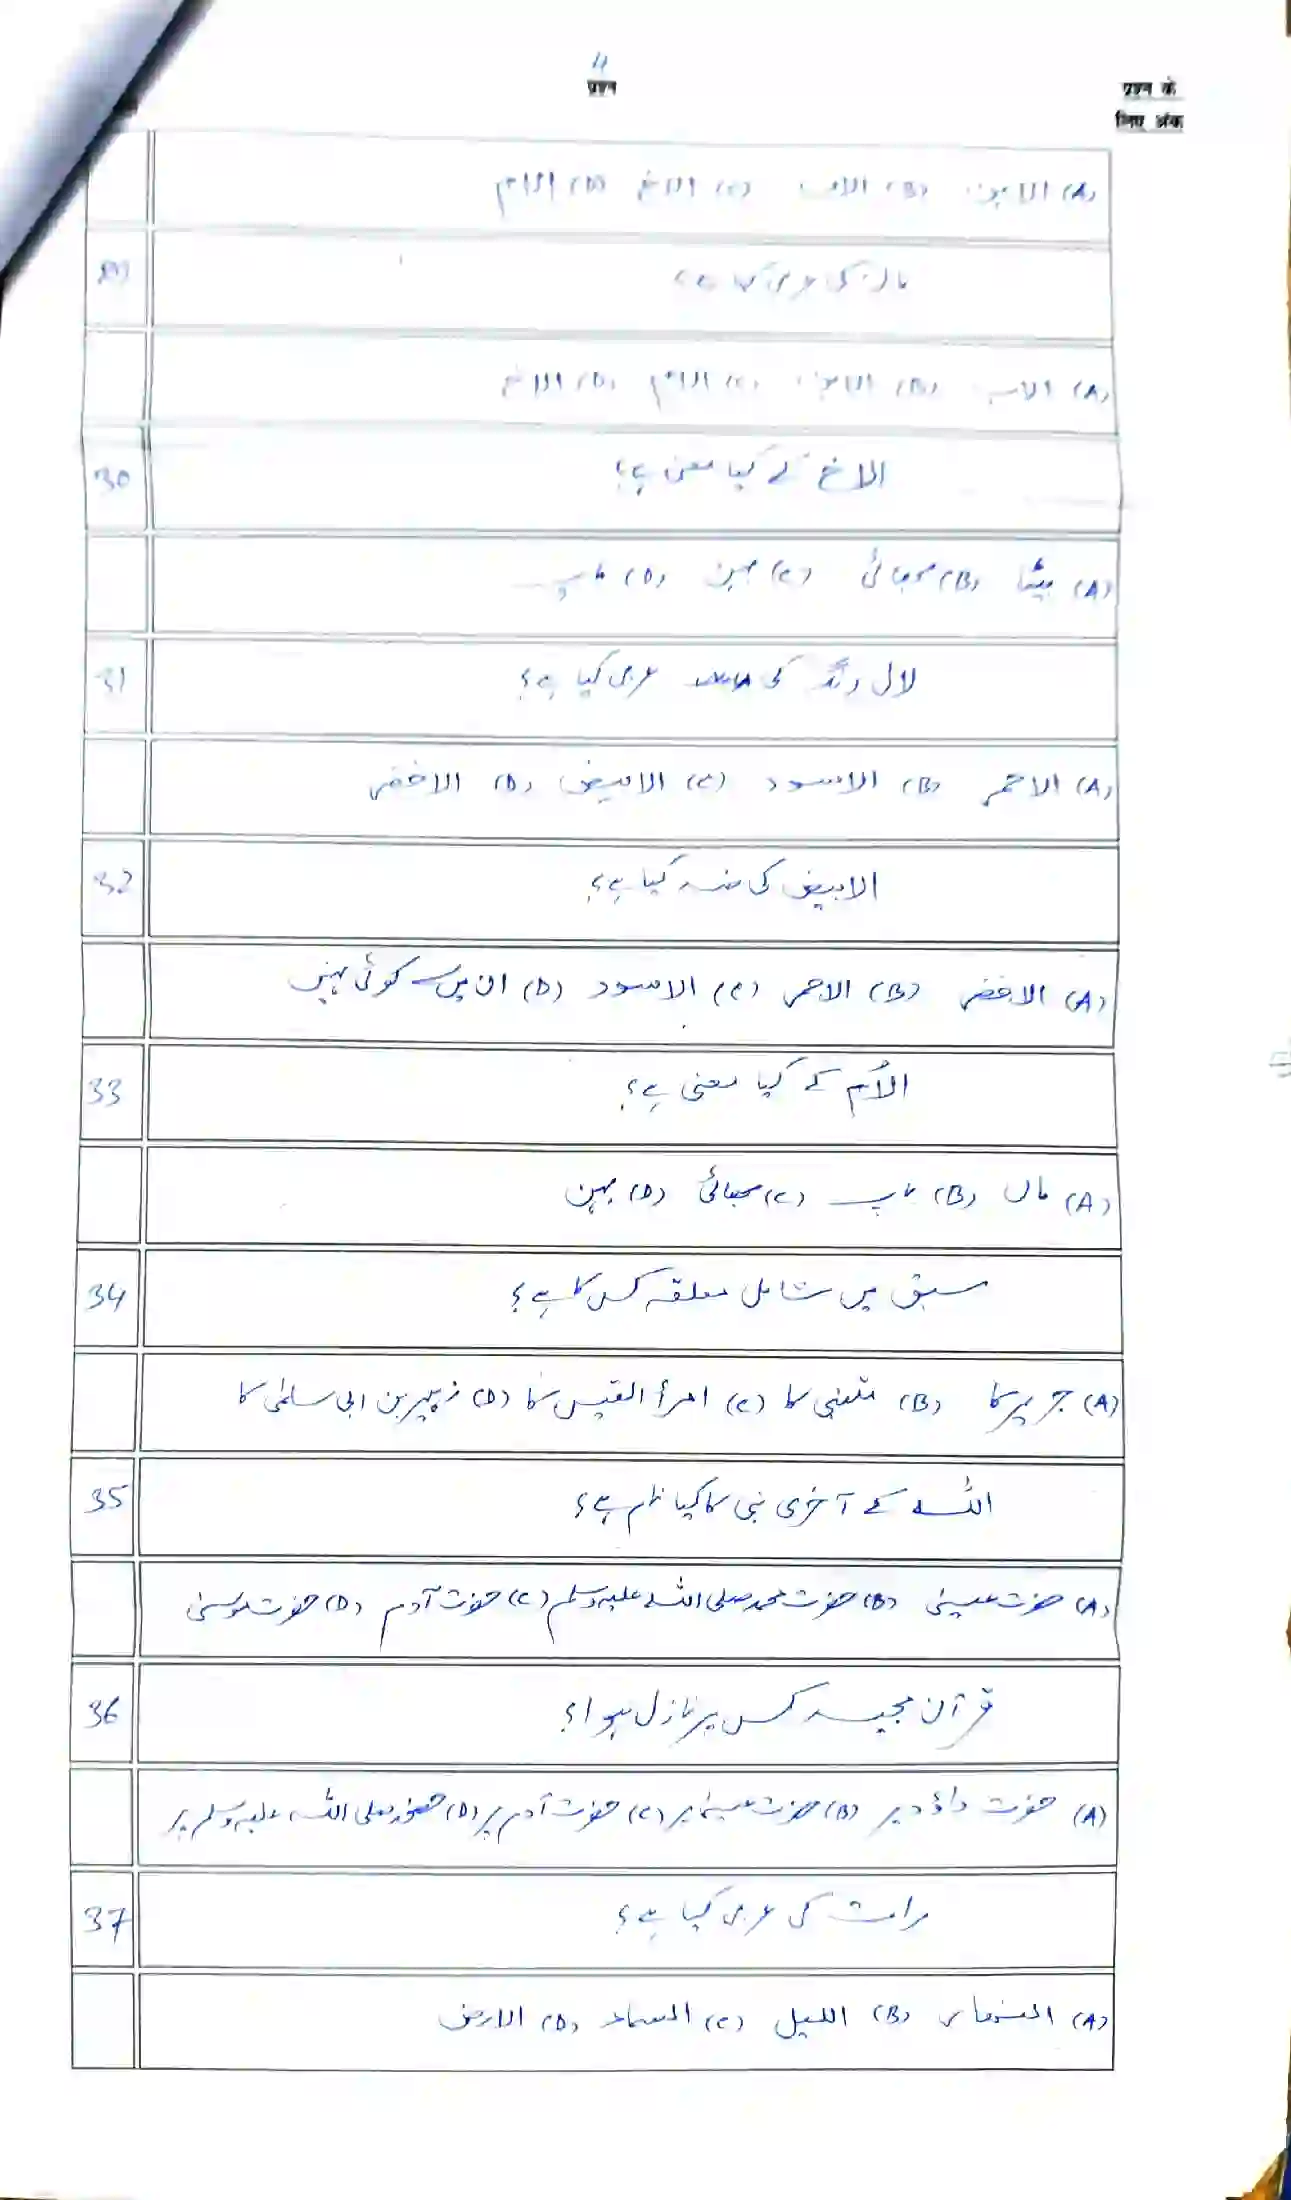 4
प्रश्न
प्रश्न के
लिए अंक
(A) الابن (B) الاب (C) الاخ (D) الام
29 ماں کی عربی کیا ہے؟
(A) الاب (B) الابن (C) الام (D) الاخ
30 الاخ کے کیا معنی ہے؟
(A) بیٹا (B) بھائی (C) بہن (D) باپ
31 لال رنگ کی عربی کیا ہے؟
(A) الاحمر (B) الاسود (C) الابیض (D) الاخضر
32 الابیض کی ضد کیا ہے؟
(A) الاخضر (B) الاحمر (C) الاسود (D) ان میں سے کوئی نہیں
33 الاُم کے کیا معنی ہے؟
(A) ماں (B) باپ (C) بھائی (D) بہن
34 سبق میں شامل معلقہ کس کا ہے؟
(A) جریر کا (B) متنبی کا (C) امرأ القیس کا (D) زہیر بن ابی سلمیٰ کا
35 اللہ کے آخری نبی کا کیا نام ہے؟
(A) حضرت عیسیٰ (B) حضرت محمد صلی اللہ علیہ وسلم (C) حضرت آدم (D) حضرت موسیٰ
36 قرآن مجید کس پر نازل ہوا؟
(A) حضرت داؤد پر (B) حضرت عیسیٰ پر (C) حضرت آدم پر (D) محمد صلی اللہ علیہ وسلم پر
37 رات کی عربی کیا ہے؟
(A) النہار (B) اللیل (C) السماء (D) الارض